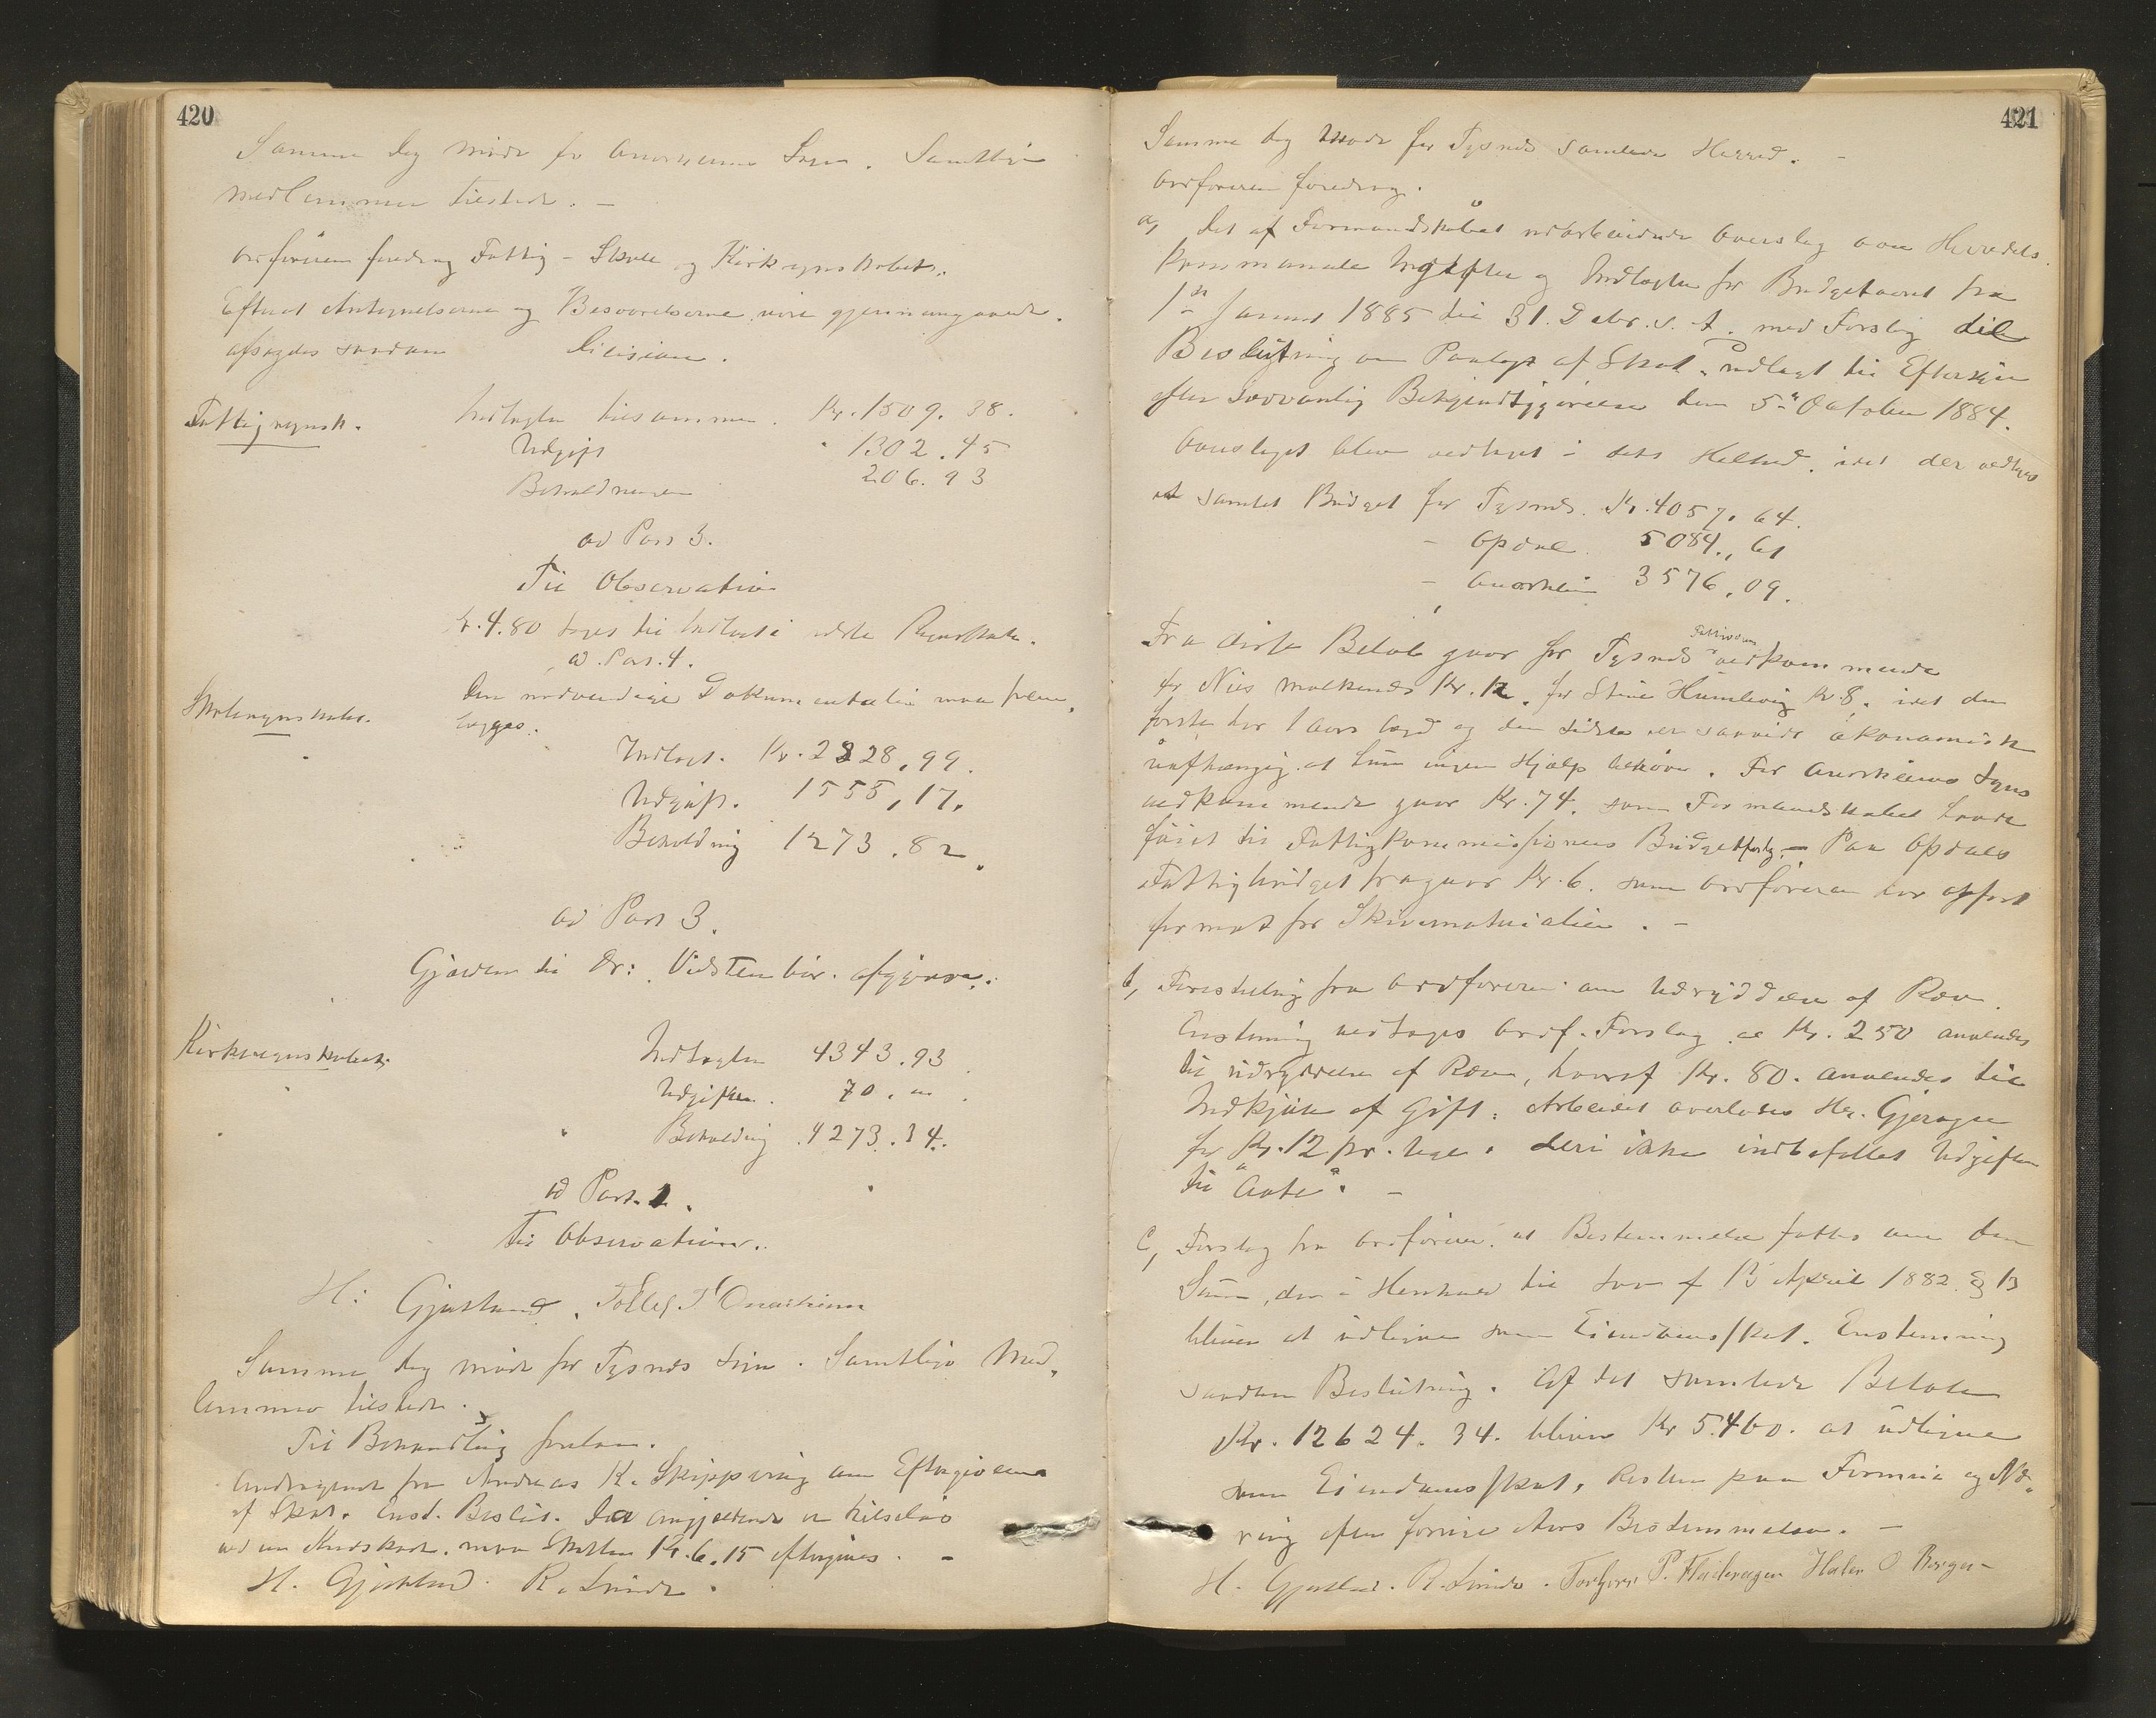 420
Samme Dag møde for Onarheims Sogn. Samtlige
Medlemmer tilstede. –
Ordføreren foredrog Fattig- Skole og Kirkeregnskabet.
Efterat Antegnelserne og Besvarelserne vare gjennemgaaede.
afsagdes saadan Decision.
Fattigregnsk. Indtægten tilsammen. Kr. 1509. 38.
Udgift 1302. 45
Beholdningen 206. 93
ad Post 3.
Til Observation
Kr. 4.80 tages til Indtægt i næste Regnskab.
ad. Post. 4.
Den nødvendige Dokumentation maa frem-
lægges.
Skoleregnskabet.
Indtægt. Kr. 2828, 99.
Udgift. 1555, 17.
Beholdning 1273. 82.
ad Post 3.
Gjælden til Dr: Vidsten bør afgjøres.
Kirkeregnskabet. Indtægten 4343. 93
Udgiften. 70. "
Beholdning. 4273. 34.
ad Post. 1.
Til Observation.
H: Gjøstland, Tollef T Onarheim
Samme Dag møde for Tysnæs Sogn. Samtlige Med-
lemmer tilstede.
Til Behandling forelaa.
Andragende fra Andreas K. Skippsvig om Eftergivelse
af Skat. Enst. Beslut. Da angjældende er tilsluds
ved en maa Skatten Kr. 6. 15 eftergives. –
H. Gjøstland. R. Lunde.
421
Samme Dag møde for Tysnæs samlede Herred. –
Ordføreren foredrog.
a, Det af Formandskabet udarbeidede Overslag over Herredets
kommunale Udgifter og Indtægter for Budgetaaret fra
1ste Januar 1885 til 31. Decbr. s. A. med Forslag til
Beslutning om Paalæg af Skat, udlagt til Eftersyn
efter sædvanlig Bekjendtgjørelse den 5te October 1884.
Overslaget blev vedtaget i dets Helhed, idet der vedtages
et samlet Budget for Tysnæs. Kr. 4057. 64.
– Opdal 5084., 61
– Onarheim 3576, 09.
Fra disse Beløb gaar for Tysnæs Fattigvæsen vedkommende
for Nils Kr. 12. for Stine Humlevig Kr 8. idet den
første har 1 aars Lægd og den sidste er saavidt økonomisk
uafhængig at hun ingen Hjælp behøver. For Onarheims Sogns
vedkommende gaar Kr. 74. som Formandskabet havde
føiet til Fattigkommissionens Budgetforslg. – Paa Opdals
Fattigbudget fragaar Kr. 6. som Ordføreren har opført
formeget for Skrivematerialier. –
b, Forestilling fra Ordføreren om Udryddelse af Ræv
Enstemmig vedtages Ordf. Forslag at Kr. 250 anvendes
til udryddelse af Ræve, hvoraf Kr. 80. anvendes til
Indkjøb af Gift. Arbeidet overlades Hr. Gjeragen
for Kr. 12 pr. Uge. deri ikke indbefattet Udgiften
til "Aate". –
c, Forslag fra Ordføreren. at Bestemmelse fattes om den
Sum, der i Henhold til Lov af 15 April 1882 § 13
bliver at udligne som Eiendomsskat. Enstemmig
saadan Beslutning. Af det samlede Beløb
Kr. 12624. 34. bliver Kr 5.460. at udligne
som Eiendomsskat, Resten paa Formue og Næ-
ring efter forrige Aars Bestemmelse. –
H. Gjøstland. R. Lunde. P. Fladaragen Haldor O Borgen